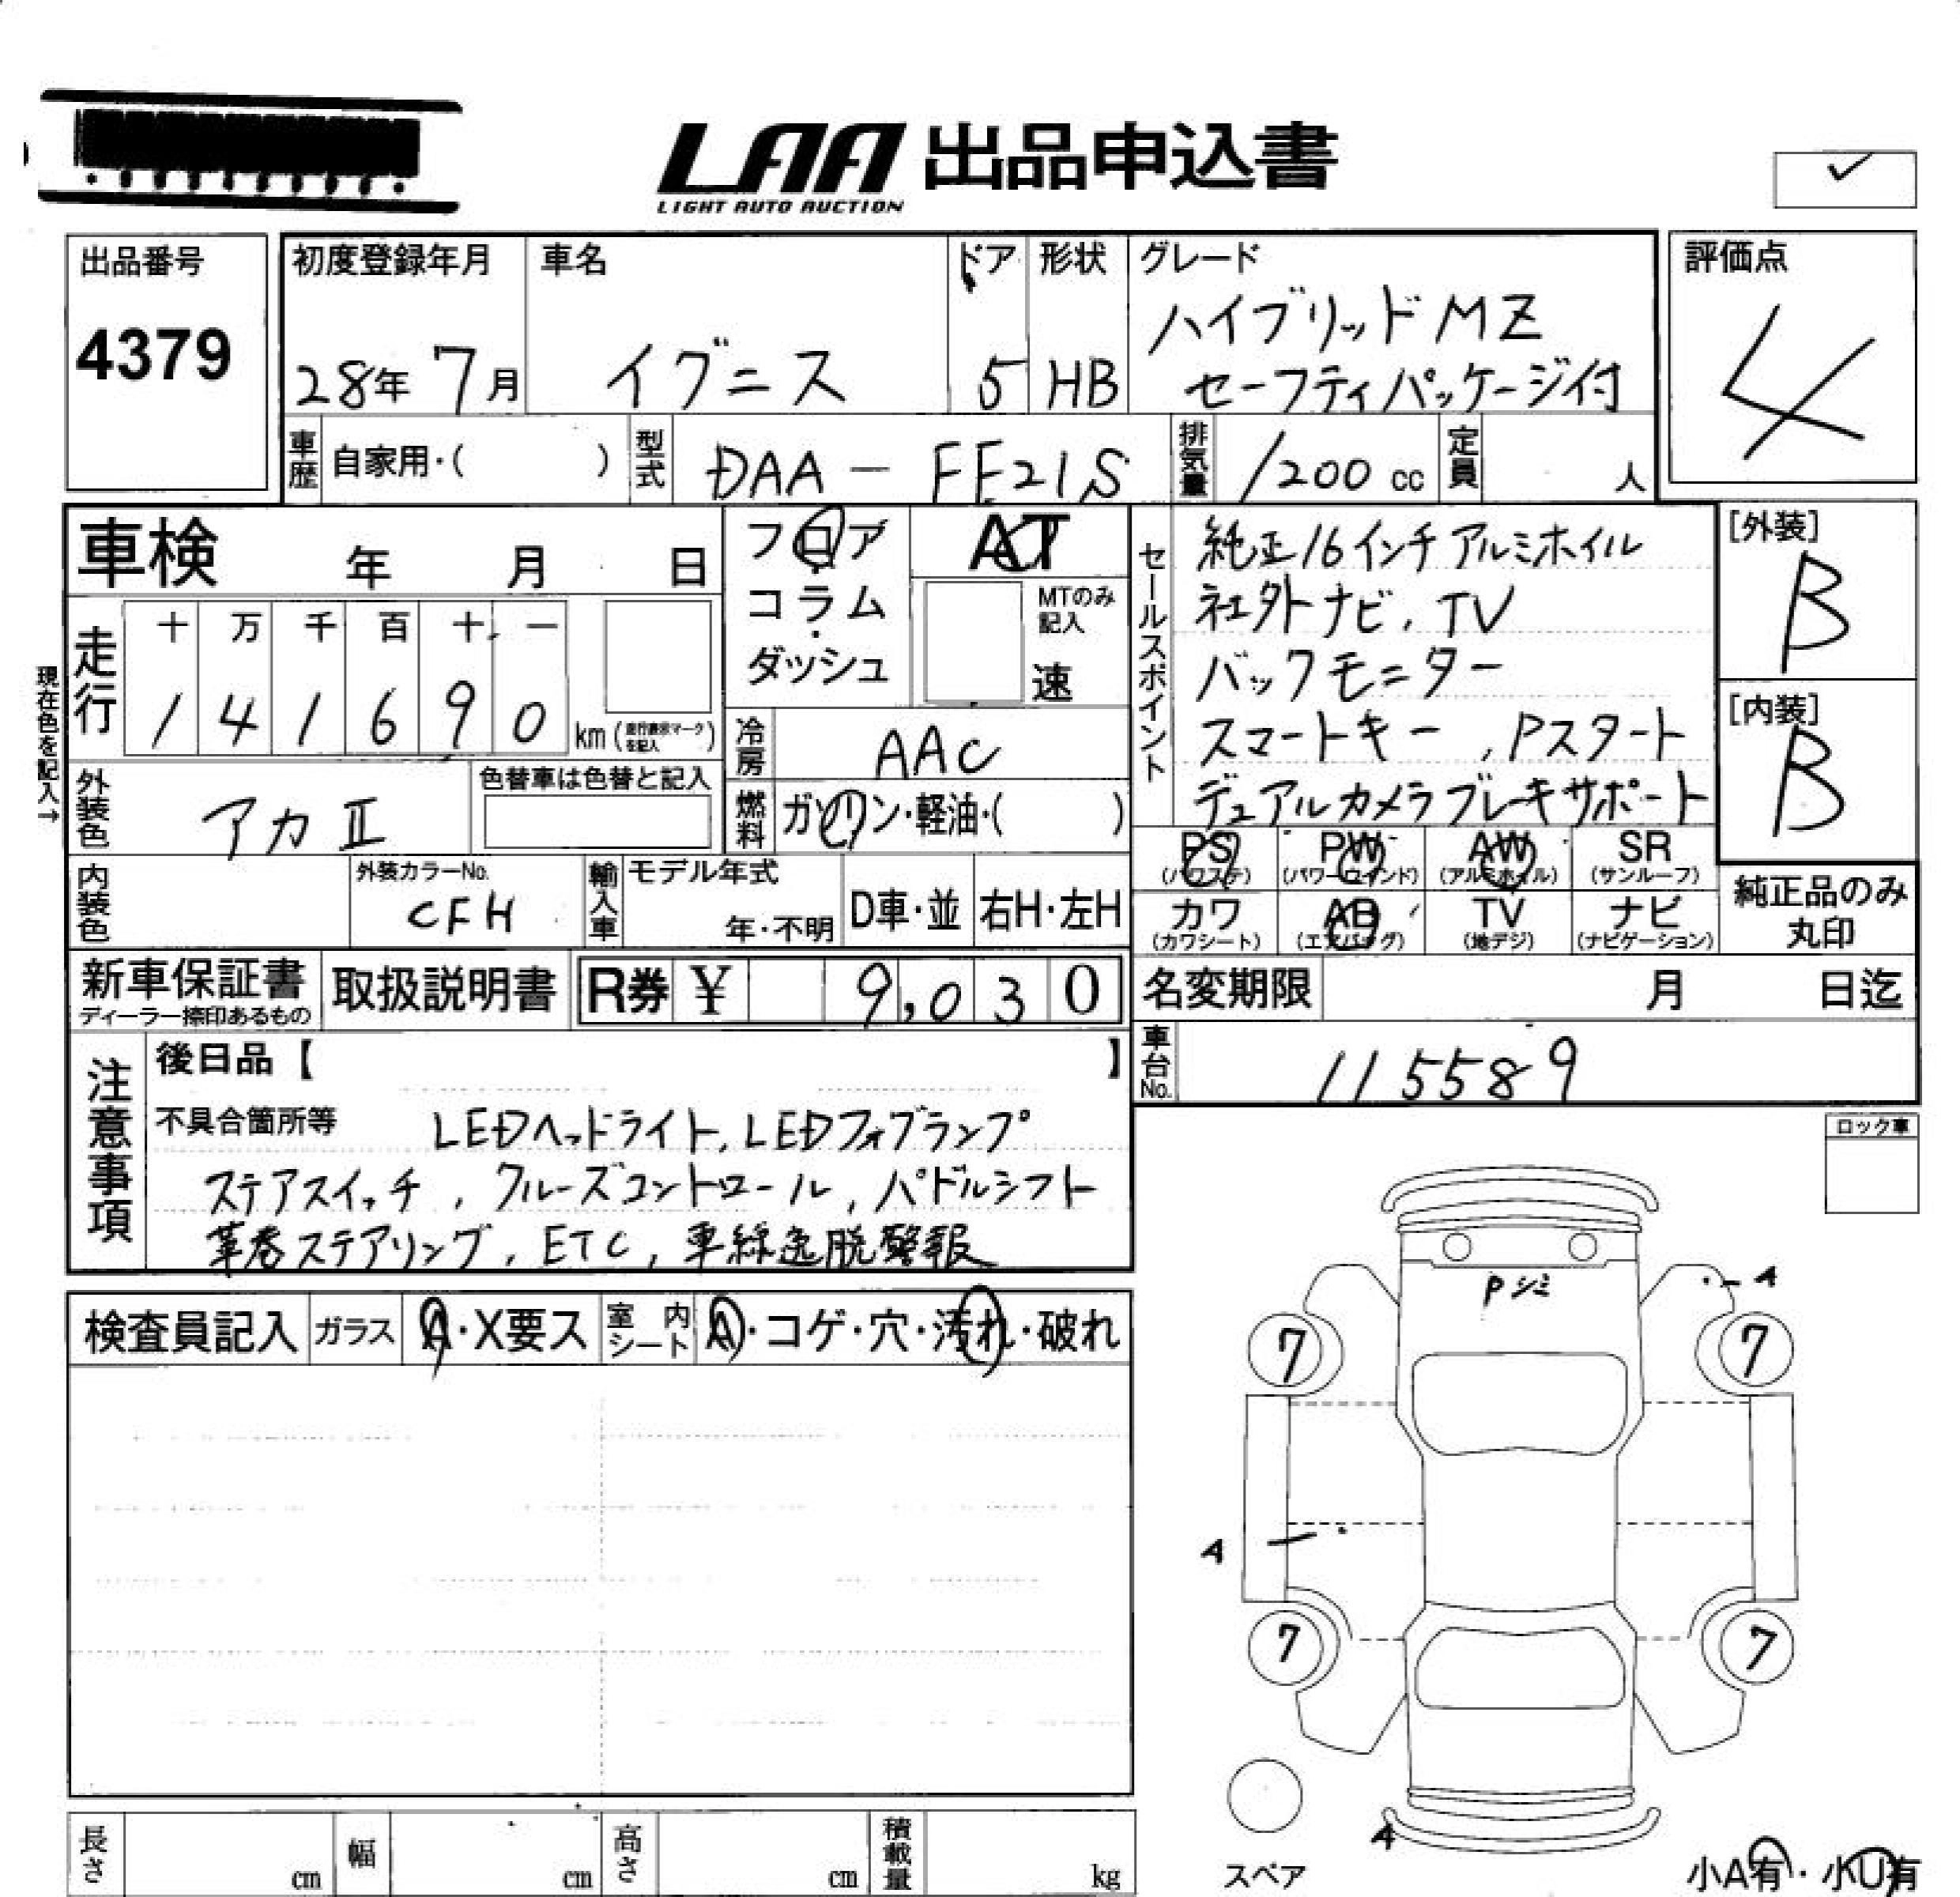 LAA 出品申込書
LIGHT AUTO AUCTION
出品番号
4379
初度登録年月
28年 7月
車名
イグニス
ドア
5
形状
HB
グレード
ハイブリッドMZ
セーフティパッケージ付
評価点
4
車歴 自家用・( )
型式 DAA-FF21S
排気量 1200 cc
定員 人
車検 年 月 日
フロア
・
コラム
・
ダッシュ
AT
MTのみ
記入
速
セールスポイント
純正16インチアルミホイル
社外ナビ, TV
バックモニター
スマートキー, Pスタート
デュアルカメラブレーキサポート
[外装]
B
[内装]
B
現在色を記入→
走行
十 万 千 百 十 一
1 4 1 6 9 0 km (走行表示マークを記入)
冷房 AAC
燃料 ガソリン・軽油・( )
外装色 アカⅡ
色替車は色替と記入
内装色
外装カラーNo.
CFH
輸入車
モデル年式
年・不明
D車・並
右H・左H
PS
(パワステ)
PW
(パワーウインド)
AW
(アルミホイル)
SR
(サンルーフ)
カワ
(カワシート)
AB
(エアバッグ)
TV
(地デジ)
ナビ
(ナビゲーション)
純正品のみ
丸印
新車保証書
ディーラー捺印あるもの
取扱説明書
R券 ¥ 9,030
名変期限 月 日迄
車台No. 115589
注意事項
後日品【 】
不具合箇所等 LEDヘッドライト, LEDフォグランプ
ステアスイッチ, クルーズコントロール, パドルシフト
革巻ステアリング, ETC, 車線逸脱警報
ロック車
検査員記入 ガラス A・X要ス 室内シート A・コゲ・穴・汚れ・破れ
Pシミ
A
7
7
A
7
7
A
スペア
小A有・小U有
長さ cm
幅 cm
高さ cm
積載量 kg